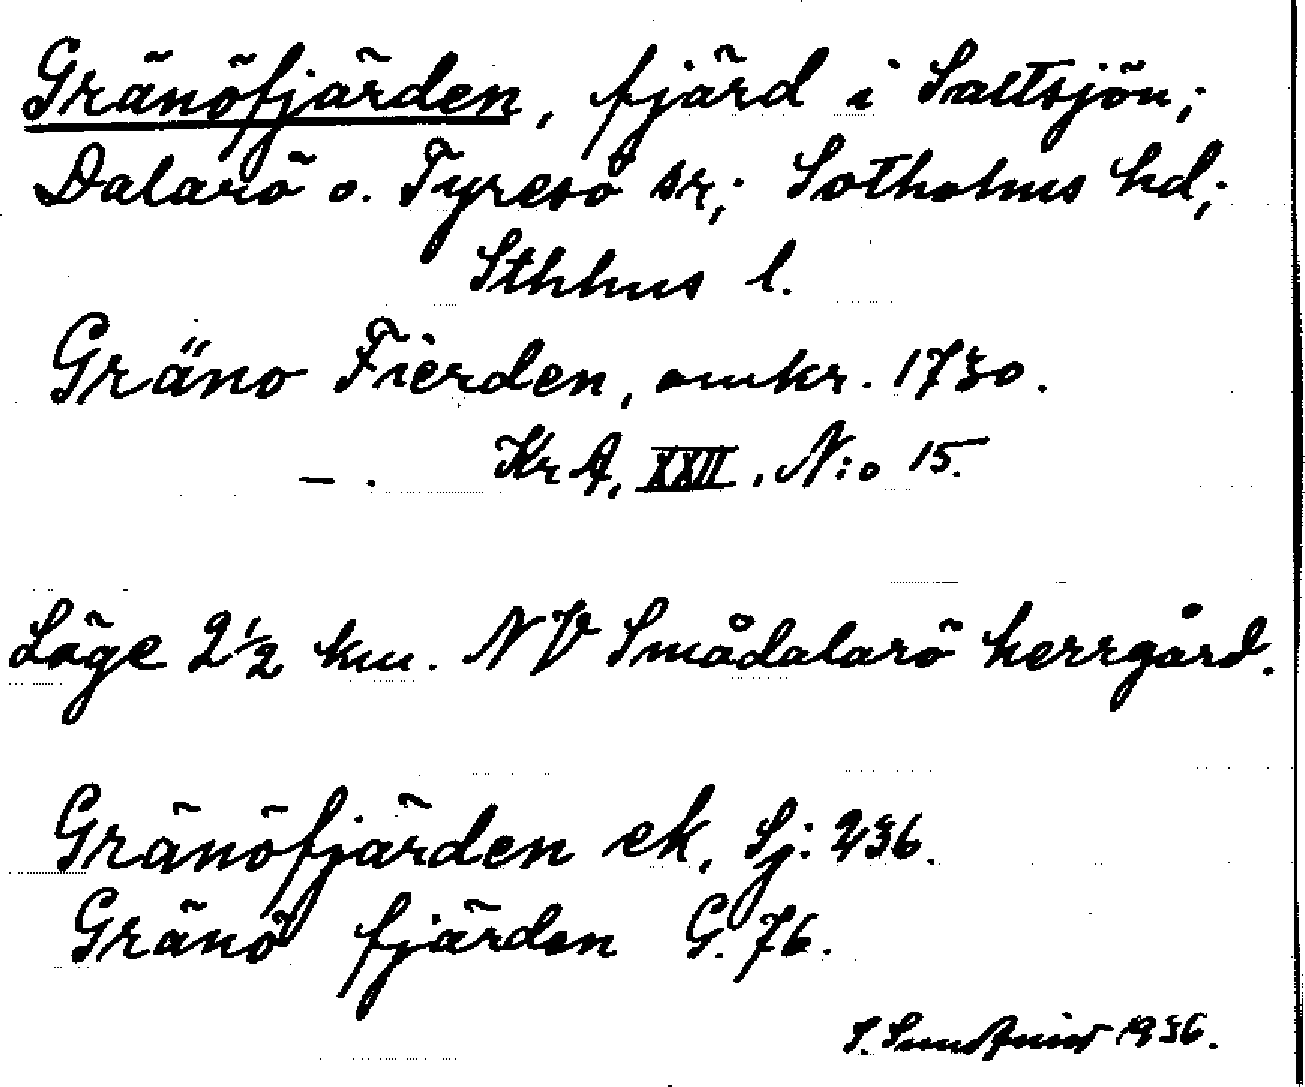 Gränöfjärden, fjärd i Saltsjön;
Dalarö o. Tyresö sr; Sotholms hd;
Sthlms l.
Gräno Fierden, omkr. 1730.
— . KrA, XXII, N:o 15.
Läge 2 1/2 km. NV Smådalarö herrgård.
Gränöfjärden ek. Sj: 236.
Gränö fjärden G. 76.
S. 1936.